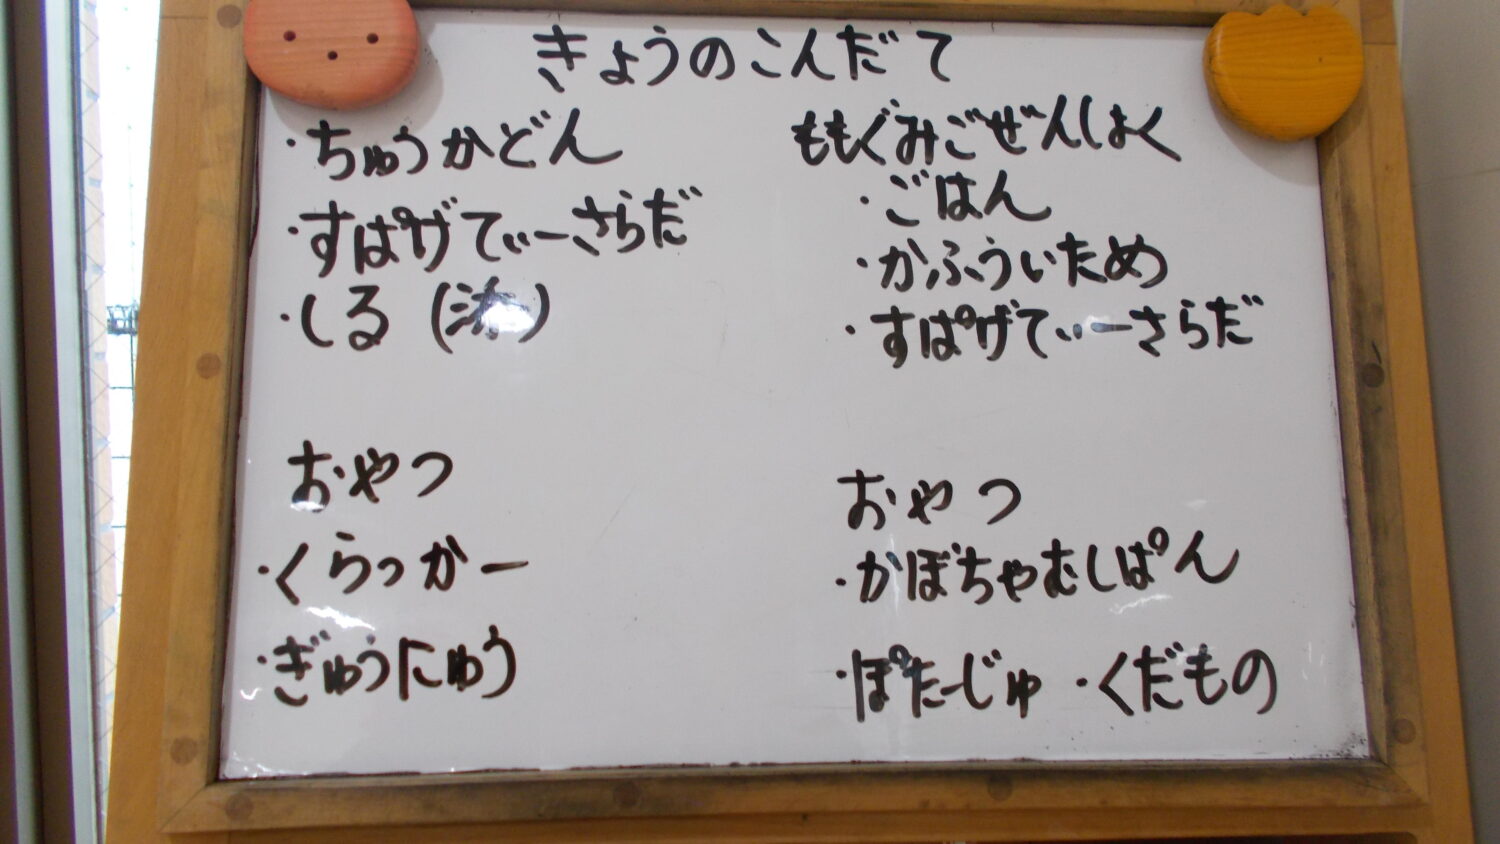 きょうのこんだて
・ちゅうかどん
・すぱげてぃーさらだ
・しる(
おやつ
・くらっかー
・ぎゅうにゅう
ももぐみごぜんしょく
・ごはん
・かふういため
・すぱげてぃーさらだ
おやつ
・かぼちゃむしぱん
・ぽたーじゅ ・くだもの